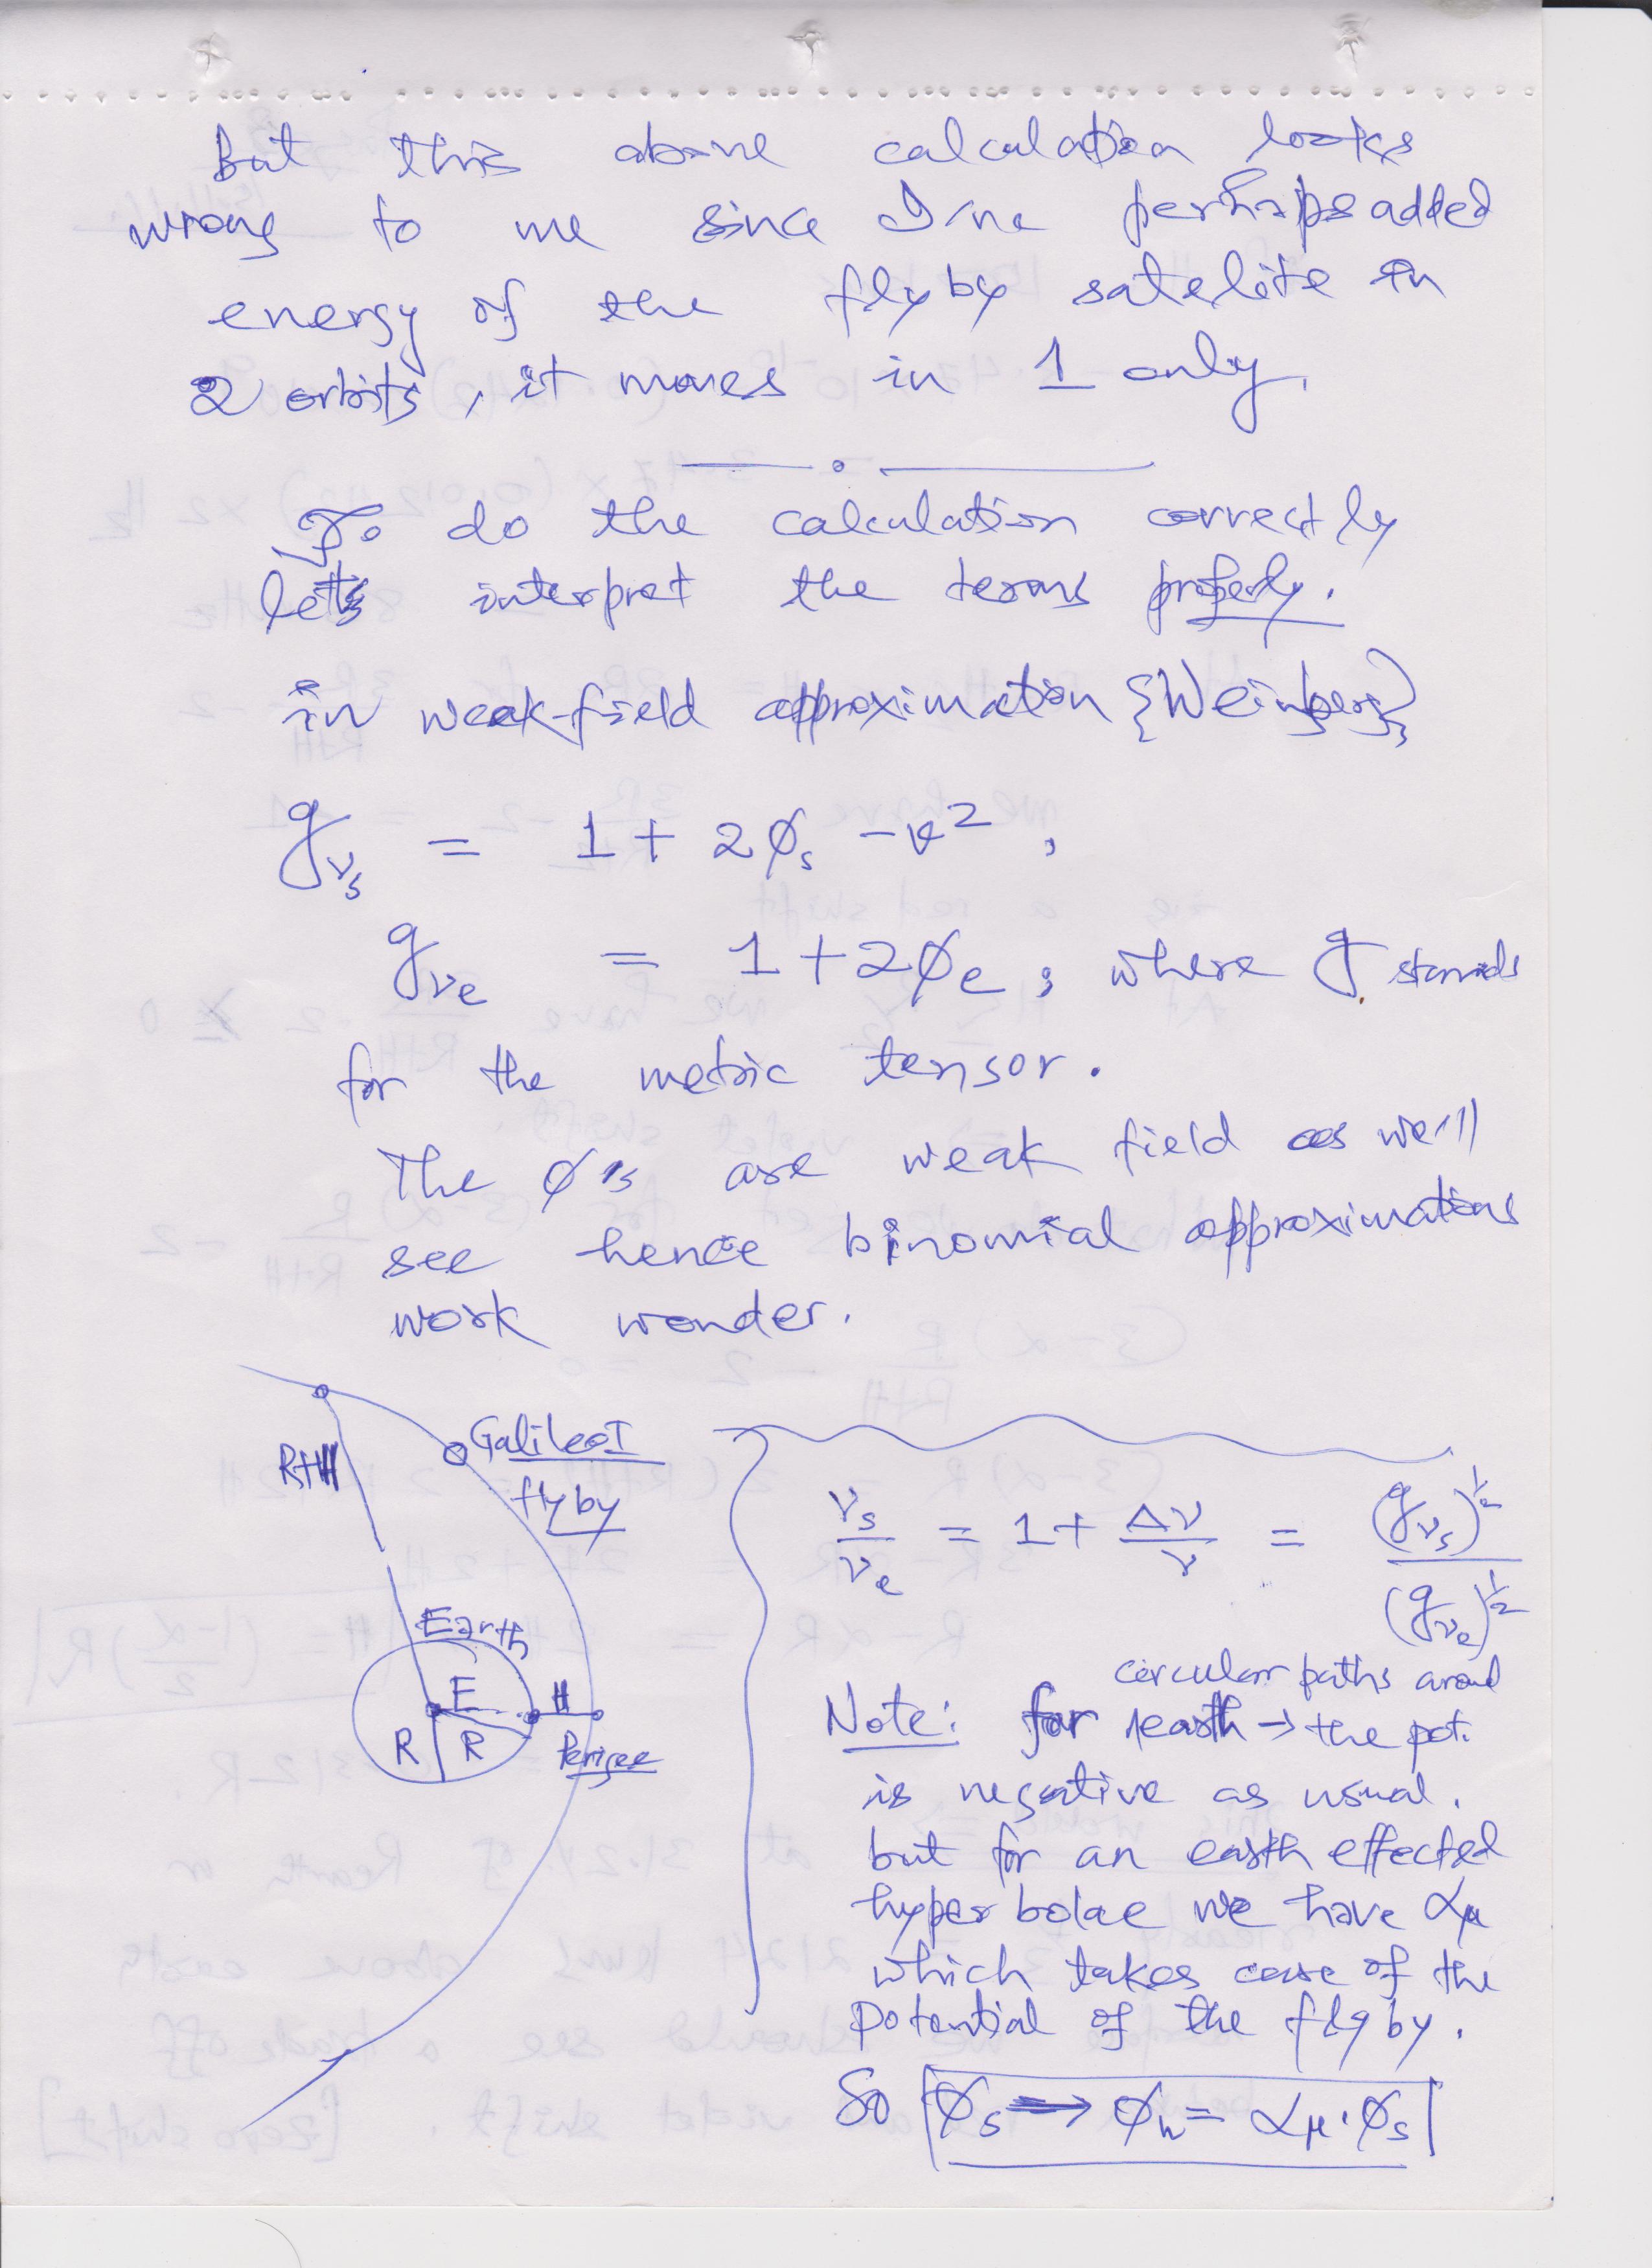 But this above calculation looks
wrong to me since I've perhaps added
energy of the flyby satelite in
2 orbits, it moves in 1 only.
To do the calculation correctly
let's interpret the terms properly.
in weak-field approximation {Weinberg}
g_νs = 1 + 2φ_s - v²,
g_νe = 1 + 2φ_e; where g stands
for the metric tensor.
The φ's are weak field as we'll
see hence binomial approximations
work wonder.
Galileo I
flyby
R+H
Earth
E
H
R
R
Perigee
ν_s/ν_e = 1 + Δν/ν = (g_νs)^½/(g_νe)^½
circular paths around
Note: for earth → the pot.
is negative as usual.
but for an earth effected
hyperbolae we have α_μ
which takes care of the
potential of the flyby.
So φ_s ⟹ φ_h = α_μ·φ_s